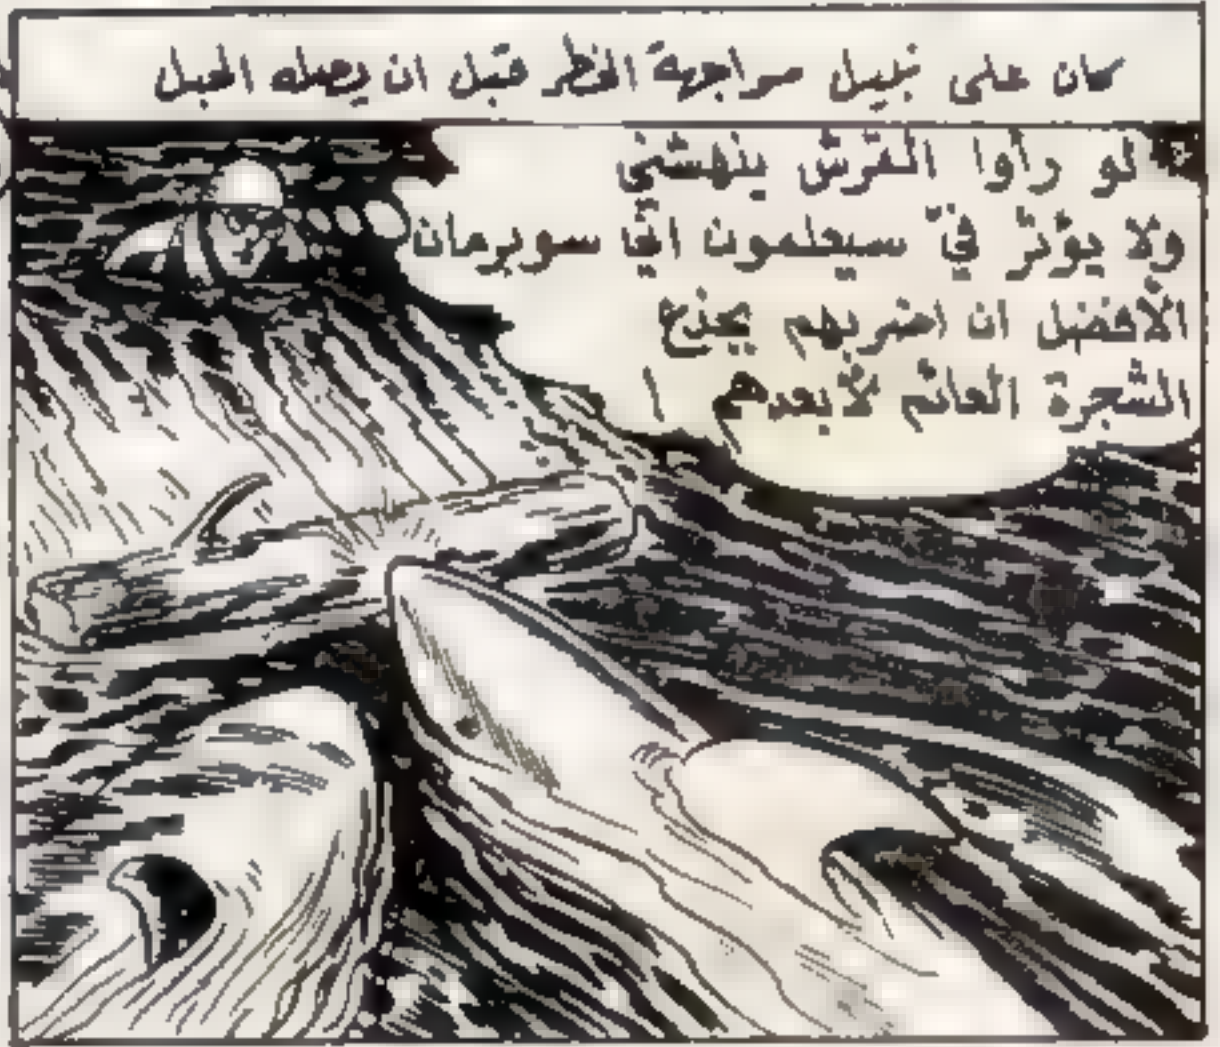 كان على نبيل مواجهة الخطر قبل ان يصله الحبل
لو رأوا القرش ينهشني
ولا يؤثر فيّ سيعلمون اني سوبرمان
الأفضل ان اضربهم بجذع
الشجرة العائم لأبعدهم !